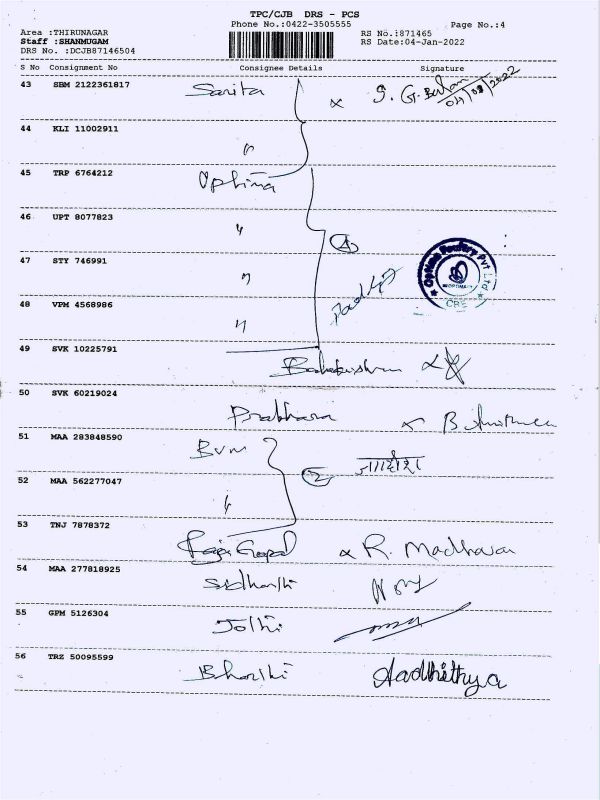 TPC/CJB DRS - PCS
Phone No.:0422-3505555 Page No.:4
Area :THIRUNAGAR RS No.:871465
Staff :SHANMUGAM RS Date:04-Jan-2022
DRS No. :DCJB87146504
S No Consignment No Consignee Details Signature
43 SBM 2122361817 Sarita x S. G.
44 KLI 11002911 "
45 TRP 6764212 Optima
46 UPT 8077823 "
4
47 STY 746991 "
Optima Poultry Pvt Ltd
OPTIMA
CBE
48 VPM 4568986 "
49 SVK 10225791
50 SVK 60219024 Prabhara x B
51 MAA 283848590 Bvm
2
52 MAA 562277047 "
53 TNJ 7878372 Raja Gopal x R. Madhavan
54 MAA 277818925 Sidharthi
55 GPM 5126304 Jothi
56 TRZ 50095599 Bharthi Aadhithya